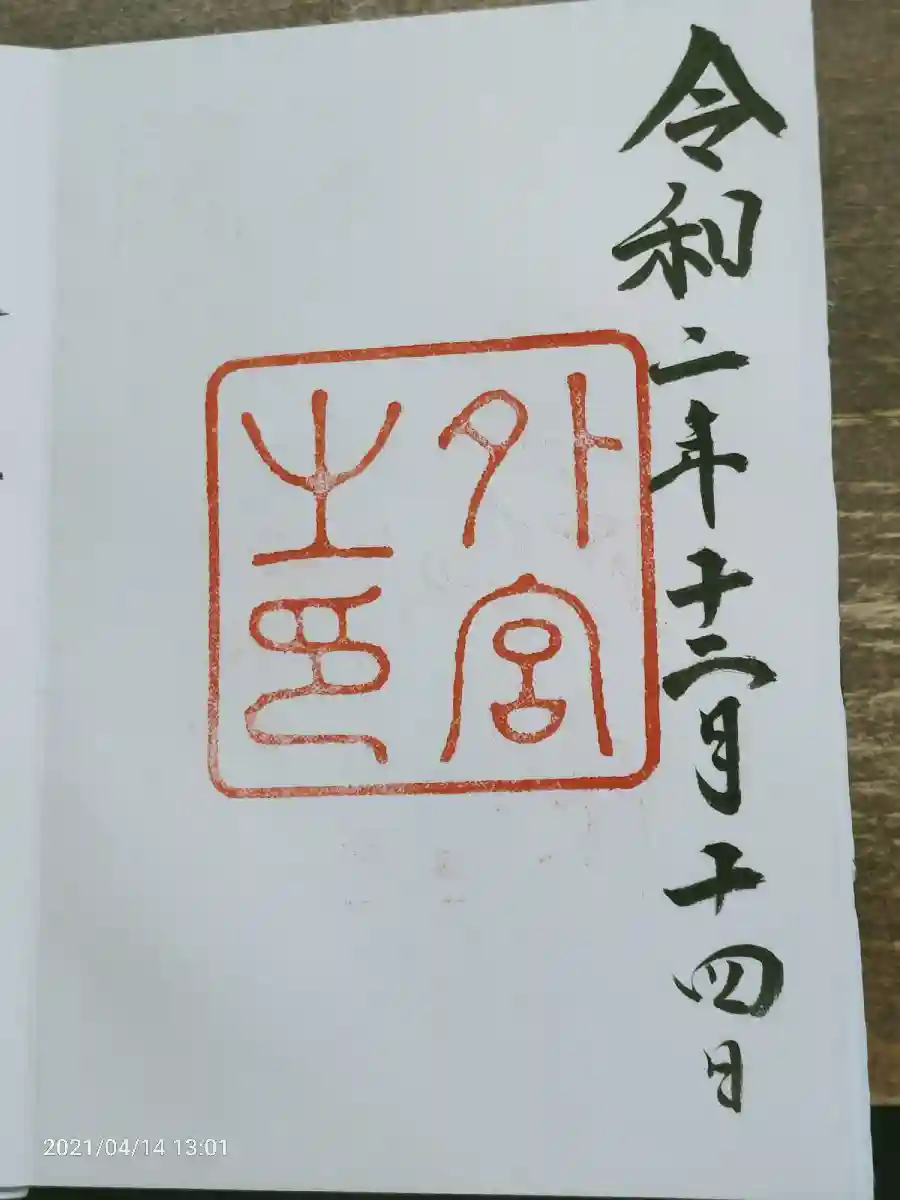 令和二年十二月十四日
外宮
之印
2021/04/14 13:01